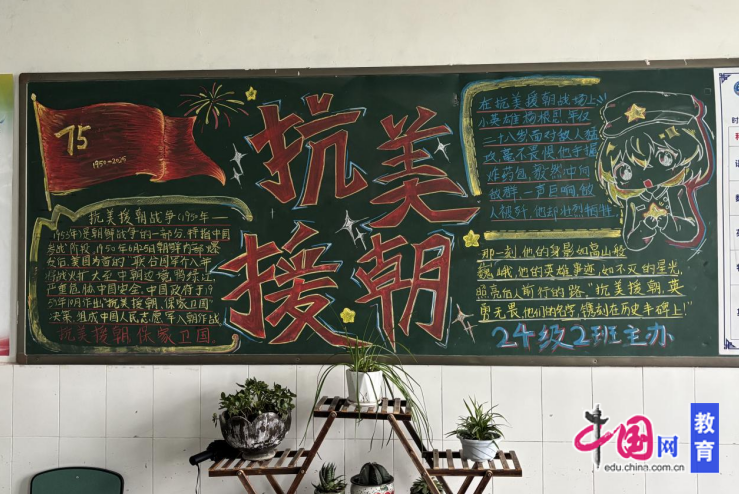 75
1950-2025
抗美
援朝
抗美援朝战争(1950年—
1953年)是朝鲜战争的一部分,特指中国
参战阶段,1950年6月25日朝鲜内部爆
发后,美国为首的"联合国军"入
将战火扩大至中朝边境,鸭绿江,
严重危胁中国安全,中国政府于19
50年10月作出"抗美援朝,保家卫国"
决策,组成中国人民志愿军入朝作战
抗美援朝,保家卫国.
在抗美援朝战场上,
小英雄杨根思年仅
二十八岁面对敌人猛
攻,毫不畏惧,他手握
炸药包,毅然冲向
敌群,一声巨响,敌
人被歼,他却壮烈牺牲
那一刻,他的身影如高山般
巍峨,他的英雄事迹,如不灭的星光,
照亮后人前行的路,"抗美援朝,英
勇无畏,他们的名字,镌刻在历史丰碑上!"
24级2班主办
中国网
edu.china.com.cn
教育